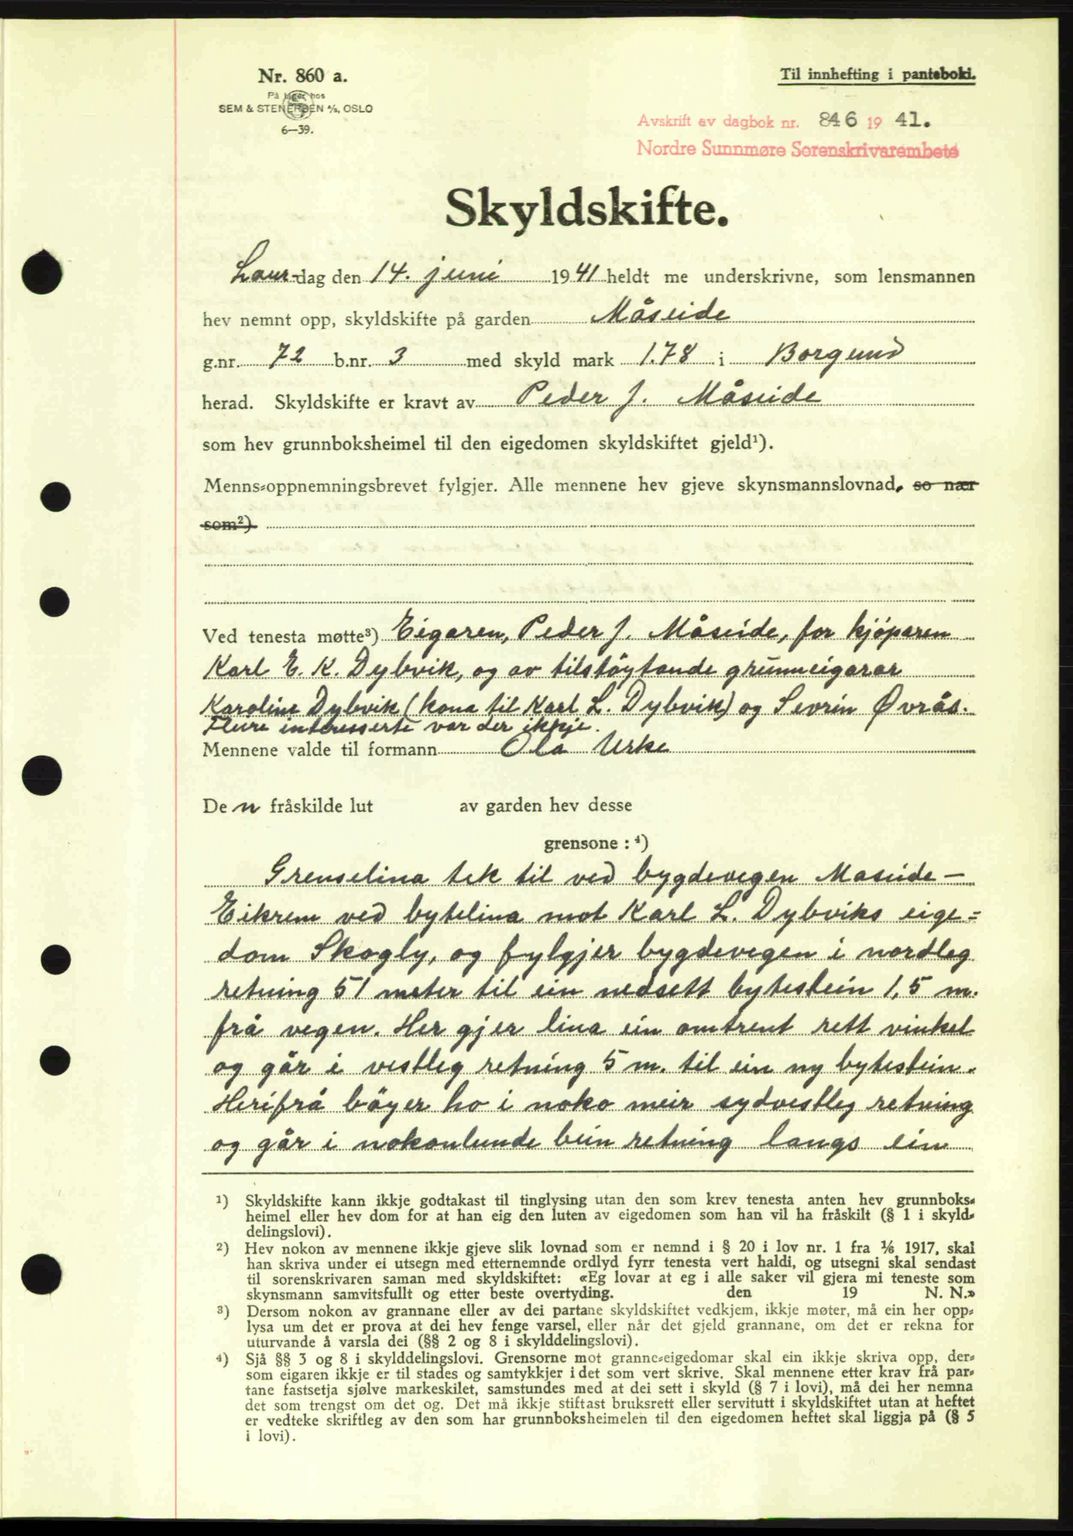 Nr. 860 a.
På lager hos
SEM & STENERSEN A/S, OSLO
6—39.
Til innhefting i panteboki.
Avskrift av dagbok nr. 846 19 41.
Nordre Sunnmøre Sorenskrivarembete
Skyldskifte.
Laurdag den 14. juni 1941 heldt me underskrivne, som lensmannen
hev nemnt opp, skyldskifte på garden Måseide
g.nr. 72 b.nr. 3 med skyld mark 1.78 i Borgund
herad. Skyldskifte er kravt av Peder J. Måseide
som hev grunnboksheimel til den eigedomen skyldskiftet gjeld¹).
Menns-oppnemningsbrevet fylgjer. Alle mennene hev gjeve skynsmannslovnad, so nær
som²)
Ved tenesta møtte³) Eigaren, Peder J. Måseide, for kjøparen
Karl E. K. Dybvik, og av tilstøytande grunneigarar
Karoline Dybvik (kona til Karl L. Dybvik) og Sevrin Øvrås.
Fleire interesserte var der ikkje.
Mennene valde til formann Ola Urke
De n fråskilde lut av garden hev desse
grensone : ⁴)
Grenselina tek til ved bygdevegen Maseide—
Eikrem ved bytelina mot Karl L. Dybviks eige=
dom Skogly, og fylgjer bygdevegen i nordleg
retning 51 meter til ein nedsett bytestein 1,5 m.
frå vegen. Her gjer lina ein omtrent rett vinkel
og går i vestleg retning 5 m. til ein ny bytestein.
Herifrå böyer ho i noko meir sydvestleg retning
og går i nokonlunde bein retning langs ein
¹) Skyldskifte kann ikkje godtakast til tinglysing utan den som krev tenesta anten hev grunnboks-
heimel eller hev dom for at han eig den luten av eigedomen som han vil ha fråskilt (§ 1 i skyld-
delingslovi).
²) Hev nokon av mennene ikkje gjeve slik lovnad som er nemnd i § 20 i lov nr. 1 fra ⅙ 1917, skal
han skriva under ei utsegn med etternemnde ordlyd fyrr tenesta vert haldi, og utsegni skal sendast
til sorenskrivaren saman med skyldskiftet: «Eg lovar at eg i alle saker vil gjera mi teneste som
skynsmann samvitsfullt og etter beste overtyding. den 19 N. N.»
³) Dersom nokon av grannane eller av dei partane skyldskiftet vedkjem, ikkje møter, må ein her opp-
lysa um det er prova at dei hev fenge varsel, eller når det gjeld grannane, om det er rekna for
uturvande å varsla dei (§§ 2 og 8 i skylddelingslovi).
⁴) Sjå §§ 3 og 8 i skylddelingslovi. Grensorne mot granne-eigedomar skal ein ikkje skriva opp, der-
som eigaren ikkje er til stades og samtykkjer i det som vert skrive. Skal mennene etter krav frå par-
tane fastsetja sjølve markeskilet, samstundes med at dei sett i skyld (§ 7 i lovi), må dei her nemna
det som trengst om det og. Det må ikkje stiftast bruksrett eller servitutt i skyldskiftet utan at heftet
er vedteke skriftleg av den som har grunnboksheimelen til den eigedomen heftet skal liggja på (§ 5
i lovi).